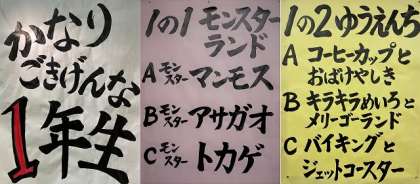 かなり
ごきげんな
1年生
1の1 モンスター
ランド
A モンスター マンモス
B モンスター アサガオ
C モンスター トカゲ
1の2 ゆうえんち
A コーヒーカップと
おばけやしき
B キラキラめいろと
メリーゴーランド
C バイキングと
ジェットコースター